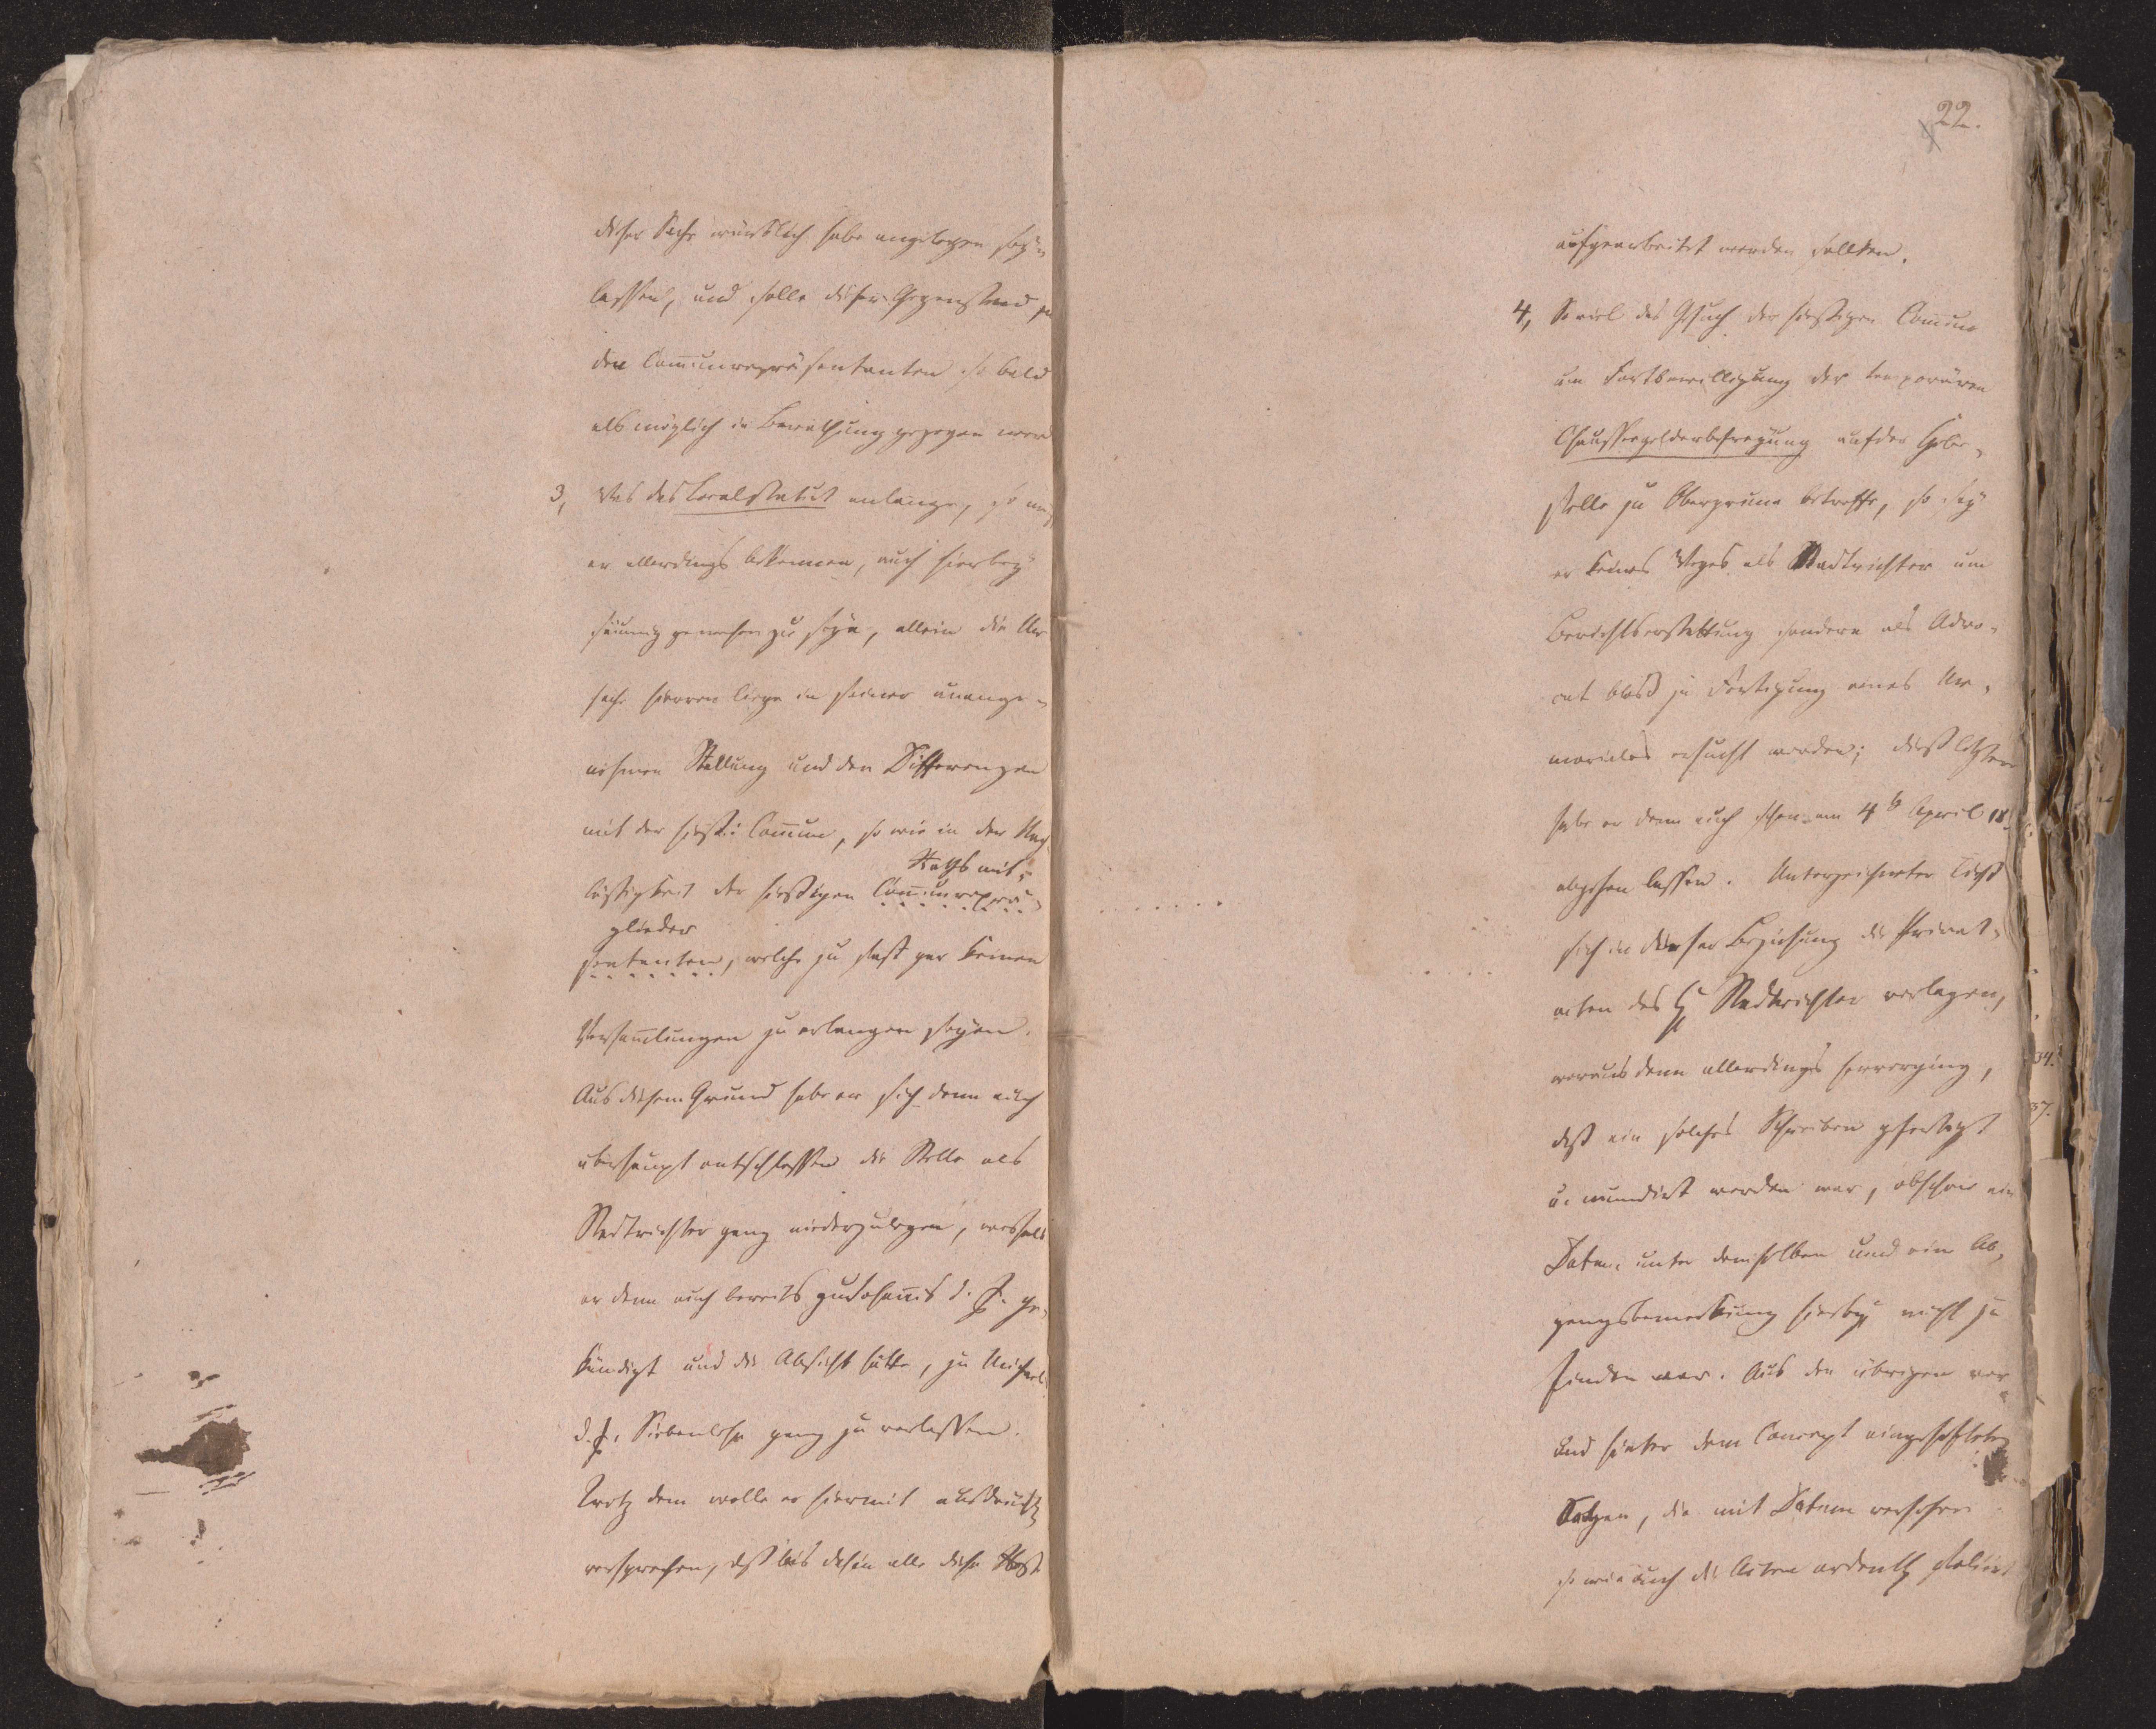 dieser Sache mündlich habe angelegen seyn
lassen, und solle dieser Gegenstand
den Com̅unrepräsentanten so bald
als möglich in Berathung gezogen werd
3, Was das Localstatut anlange, so
er allerdings bekennen, auch hierbey
säumig gewesen zu seyn, allein die Ur
sache hiervon liege in seiner unange-
nehmen Stellung und den Differenzen
mit der hies: Com̅un, so wie in der
Raths mit-
lässigkeit der hiesigen Com̅unreprä-
glieder
sentanten, welche zu fast gar keinen
Versam̅lungen zu erlangen seyen.
Aus diesem Grund habe er sich denn auch
überhaupt entschlossen die Stelle als
Stadtrichter ganz niederzulegen, weshalb
er denn auch bereits zu Johannis d. J. ge-
kündigt und die Absicht hätte, zu Michael
d. J. Siebenlehn ganz zu verlassen.
Trotz dem wolle er hiermit ausdrückl
versprechen, daß bis dahin alle diese
22.
aufgearbeitet werden sollten.
4, So viel das Gesuch der hiesigen Com̅un
um Fortbewilligung der temporären
Chausseegelderbefreyung auf der Gelei-
stelle zu Obergruna betreffe, so sey
er keines Weges als Stadtrichter um
Berichtserstattung sondern als Advo-
cat blos zu Fertigung eines Me-
moriales ersucht worden; dieß letztere
habe er denn auch schon am 4 April 18
abgehen lassen. Unterzeichneter ließ
sich in dieser Beziehung die Privat-
acten des H. Stadtrichter vorlegen,
woraus denn allerdings hervorging,
daß ein solches Schreiben gefertigt
u. mundirt worden war, obschon ein
Datum unter demselben und ein Ab-
gangsbemerkung hierbey nicht zu
finden war. Aus den übrigen vor
und hinter dem Concept eingehefteten
, die mit Datum versehen
so wie auch die Acten ordentl foliirt
34.
37.